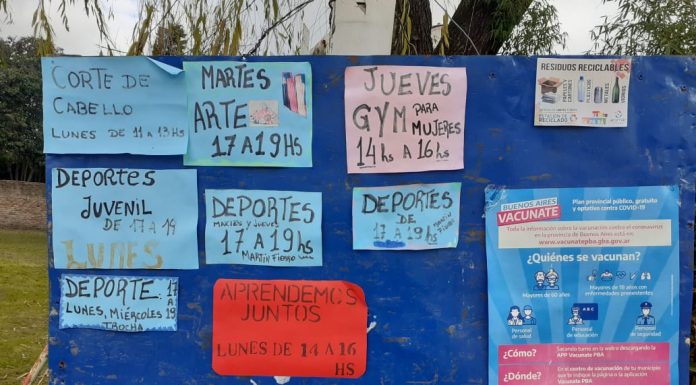 CORTE DE
CABELLO
LUNES DE 11 A 13HS
MARTES
ARTE
17 A 19HS
JUEVES
GYM PARA
MUJERES
14hs A 16hs
RESIDUOS RECICLABLES
DEPORTES
JUVENIL
DE 17 A 19
LUNES
DEPORTES
MARTES Y JUEVES
17 A 19hs
MARTIN FIERRO
DEPORTES
DE
17 A 19hs
MARTIN FIERRO
DEPORTE 17
A
LUNES, MIERCOLES 19
TROCHA
APRENDEMOS
JUNTOS
LUNES DE 14 A 16
HS
BUENOS AIRES
VACUNATE
Plan provincial público, gratuito
y optativo contra COVID-19
Toda la información sobre la vacunación contra el coronavirus
en la provincia de Buenos Aires está en:
www.vacunatepba.gba.gov.ar
¿Quiénes se vacunan?
Mayores de 60 años
Mayores de 18 años con
enfermedades preexistentes
Personal
de salud
Personal
de educación
Personal
de seguridad
¿Cómo?
Sacando turno en la web o descargando la
APP Vacunate PBA
¿Dónde?
En el centro de vacunación de tu municipio
que te indique la página o la aplicación
Vacunate PBA